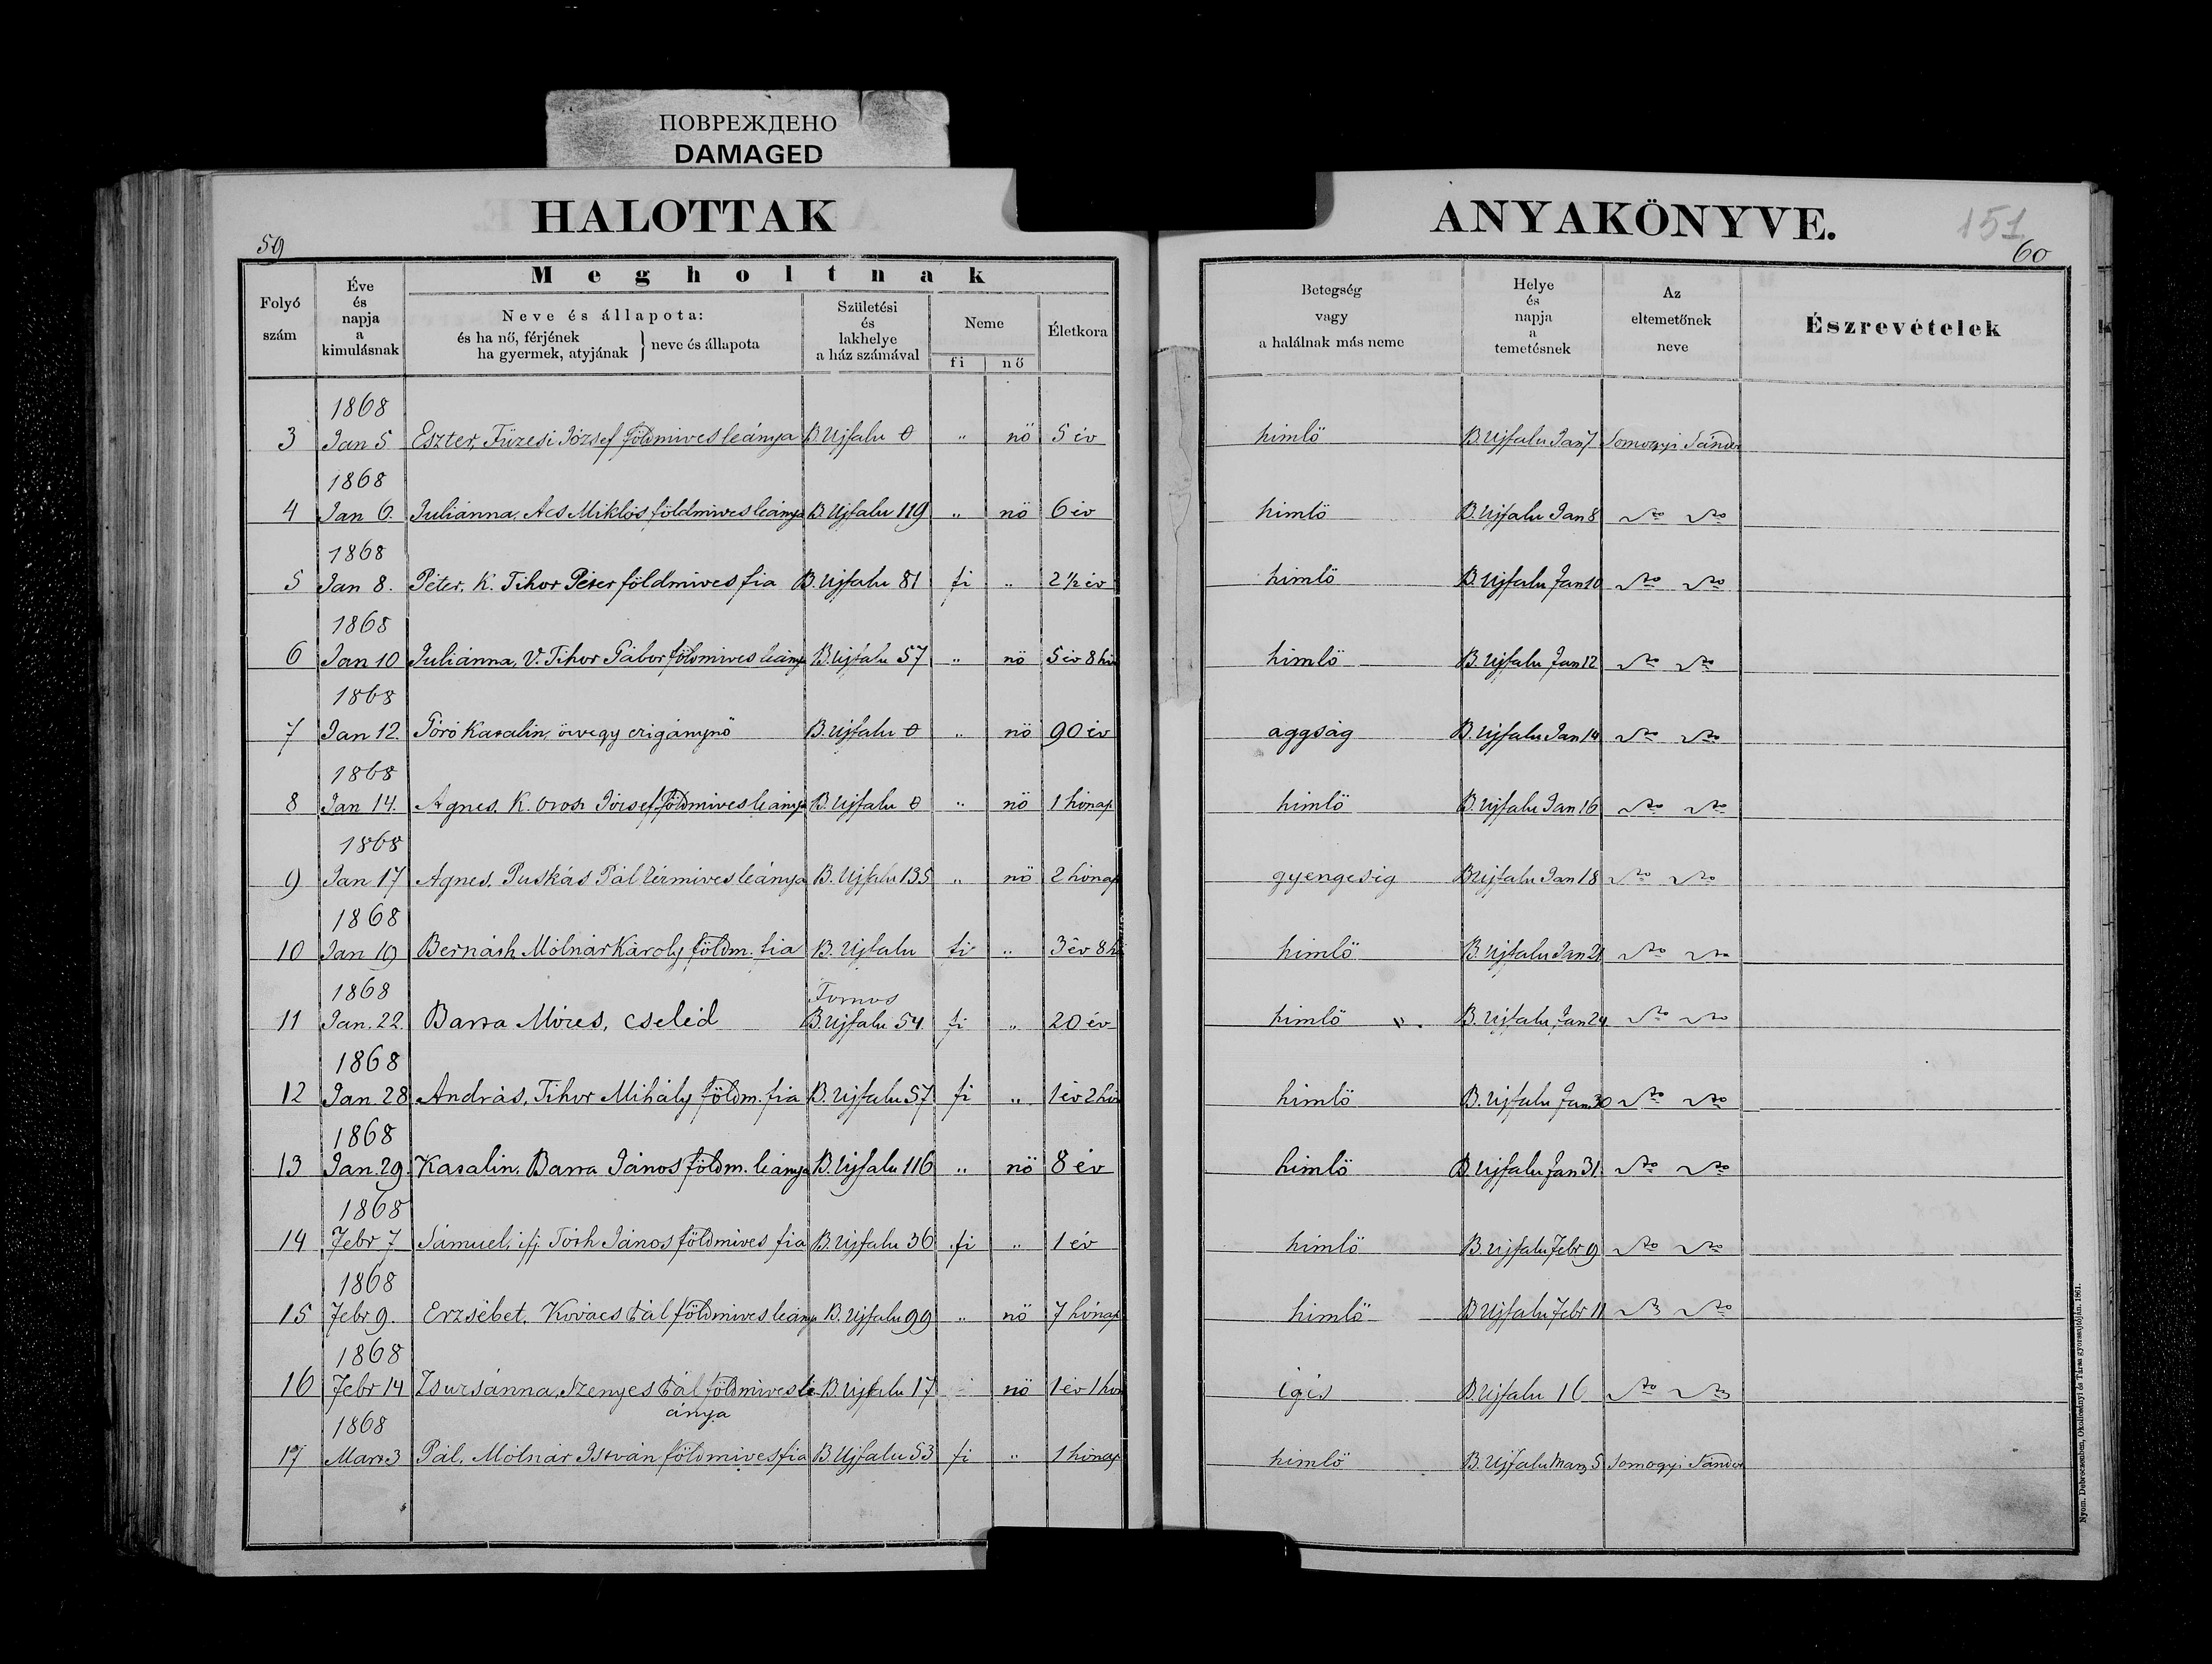 ПОВРЕЖДЕНО
DAMAGED
HALOTTAK
ANYAKÖNYVE.
151
59
60
Folyó szám
Éve és napja a kimulásnak
Megholtnak
Neve és állapota:
és ha nő, férjének
ha gyermek, atyjának } neve és állapota
Születési és lakhelye a ház számával
Neme
fi nő
Életkora
Betegség vagy a halálnak más neme
Helye és napja a temetésnek
Az eltemetőnek neve
Észrevételek
1868
3 Jan 5 Eszter, Füzesi József földmives leánya B. Ujfalu 0 " nö 5 év himlö B. Ujfalu Jan 7 Somogyi Sándor
1868
4 Jan 6. Juliánna, Acs Miklós földmives leánya B Ujfalu 119 " nö 6 év himlö B. Ujfalu Jan 8
1868
5 Jan 8. Péter, K. Tihor Péter földmives fia B. Ujfalu 81 fi " 2 1/2 év himlö B. Ujfalu Jan 10
1868
6 Jan 10 Juliánna, V. Tihor Gábor földmives leánya B. Ujfalu 57 " nö 5 év 8 hó himlö B. Ujfalu Jan 12
1868
7 Jan 12. Katalin, özvegy czigánynö B. Ujfalu 0 " nö 90 év aggság B. Ujfalu Jan 14
1868
8 Jan 14. Agnes, K. Orosz József földmives leánya B. Ujfalu 0 " nö 1 hónap himlö B. Ujfalu Jan 16
1868
9 Jan 17 Agnes, Puskás Pál leánya B. Ujfalu 135 " nö 2 hónap gyengeség B Ujfalu Jan 18
1868
10 Jan 19 Bernáth Molnár Károly földm. fia B. Ujfalu fi " 3 év 8 hó himlö B. Ujfalu Jan 21
1868
11 Jan. 22. Barta Mózes, cseléd B. Ujfalu 54 fi " 20 év himlö B. Ujfalu Jan 24
1868
12 Jan. 28 András, Tihor Mihály földm. fia B. Ujfalu 57 fi " 1 év 2 hó himlö B. Ujfalu Jan. 30
1868
13 Jan. 29. Katalin, Barta János földm. leánya B. Ujfalu 116 " nö 8 év himlö B. Ujfalu Jan 31.
1868
14 Febr 7 Sámuel, ifj. Tóth János földmives fia B. Ujfalu 36 fi " 1 év himlö B. Ujfalu Febr 9
1868
15 Febr 9. Erzsébet, Kovács Pál földmives leánya B. Ujfalu 99 " nö 7 hónap himlö B Ujfalu Febr 11
1868
16 Febr 14 Zsuzsánna, Szenyes Pál földmives le- B. Ujfalu 17 nö 1 év 1 hó égés B. Ujfalu 16
ánya
1868
17 Mart 3 Pál, Molnár István földmives fia B Ujfalu 53 fi " 1 hónap himlö B. Ujfalu Marz 5 Somogyi Sándor
Nyom. Debreczenben, Okolicsányi és Társa gyorssajtóján. 1861.